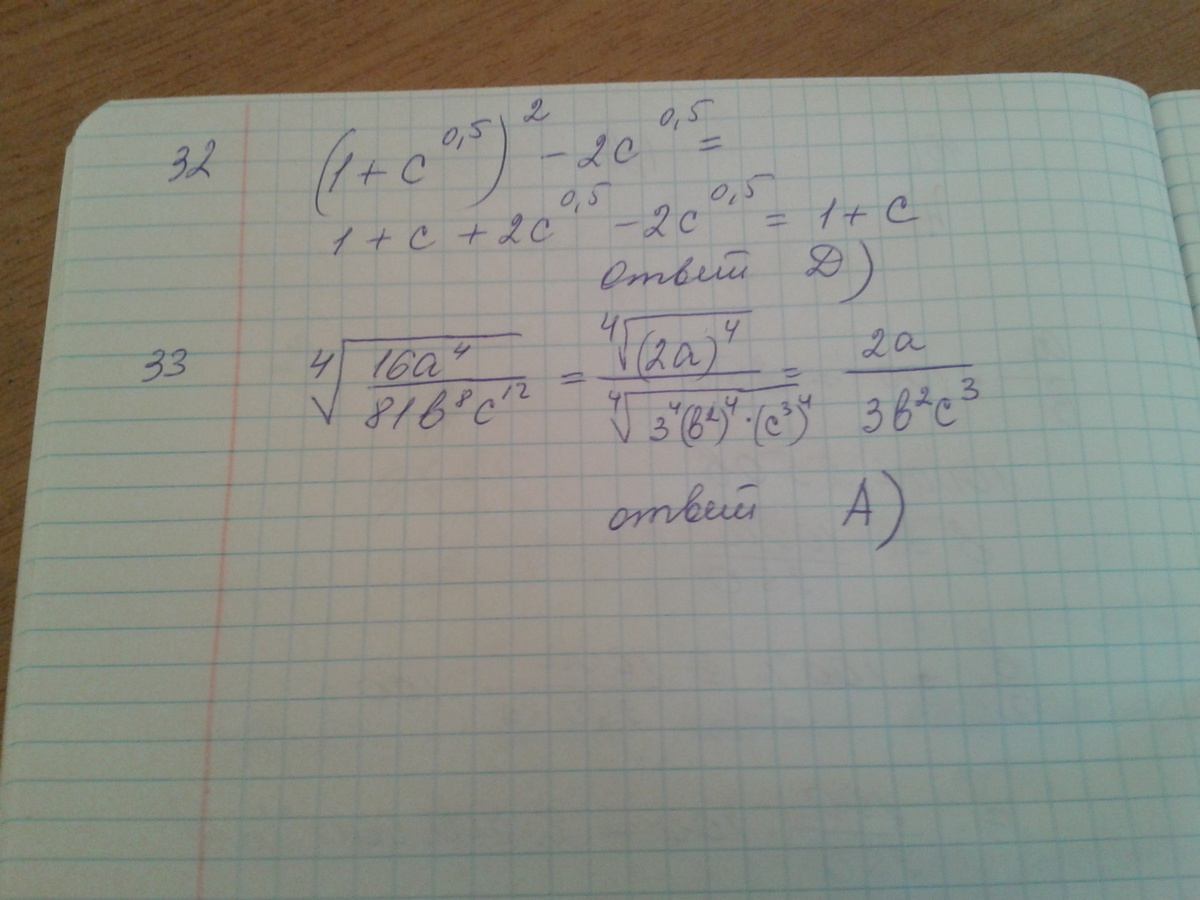 32 (1 + c^0,5)^2 - 2c^0,5 =
1 + c + 2c^0,5 - 2c^0,5 = 1 + c
ответ D)
33 ⁴√(16a^4 / 81b^8c^12) = ⁴√((2a)^4) / ⁴√(3^4(b^2)^4 · (c^3)^4) = 2a / 3b^2c^3
ответ A)